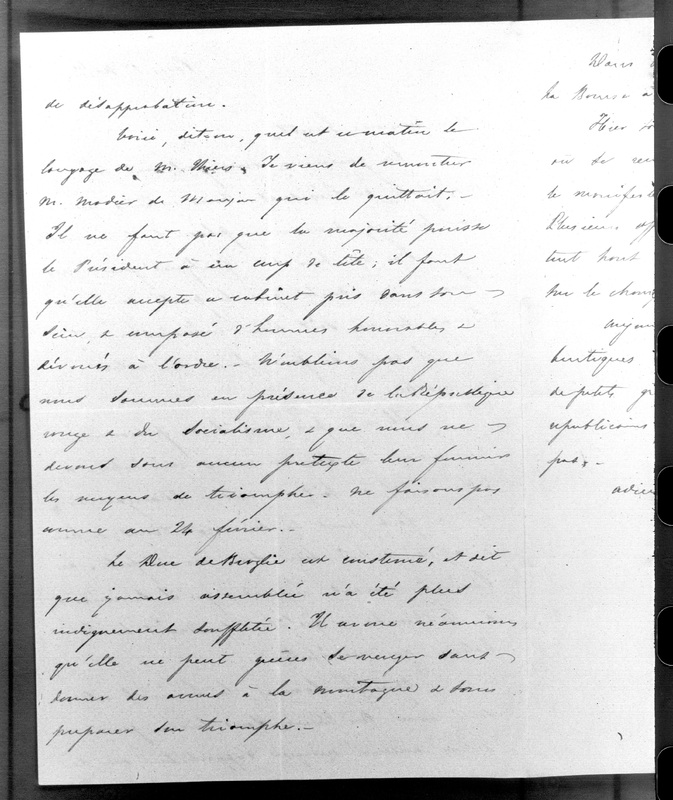 de désapprobation.
Voici, dit-on, quel est ce matin le
langage de M. Thiers. Je viens de rencontrer
M. Madier de Monjau qui le quittait. -
Il ne faut pas que la majorité pousse
le Président à un coup de tête; il faut
qu'elle accepte ce cabinet pris dans son
sein, & composé d'hommes honorables &
dévoués à l'ordre. - N'oublions pas que
nous sommes en présence de la République
rouge & du socialisme, & que nous ne
devons sous aucun prétexte leur fournir
les moyens de triomphe. ne faisons pas
comme au 24 février. -
Le Duc de Broglie est consterné, et dit
que jamais assemblée n'a été plus
indignement souffletée. Il avoue néanmoins
qu'elle ne peut guères se venger sans
donner des armes à la montagne & sans
préparer son triomphe. -
Dans
la Bourse à
Hier
on se
le manifeste
Plusieurs
tout haut
sur le
de petits
républicains
pas. -
adieu